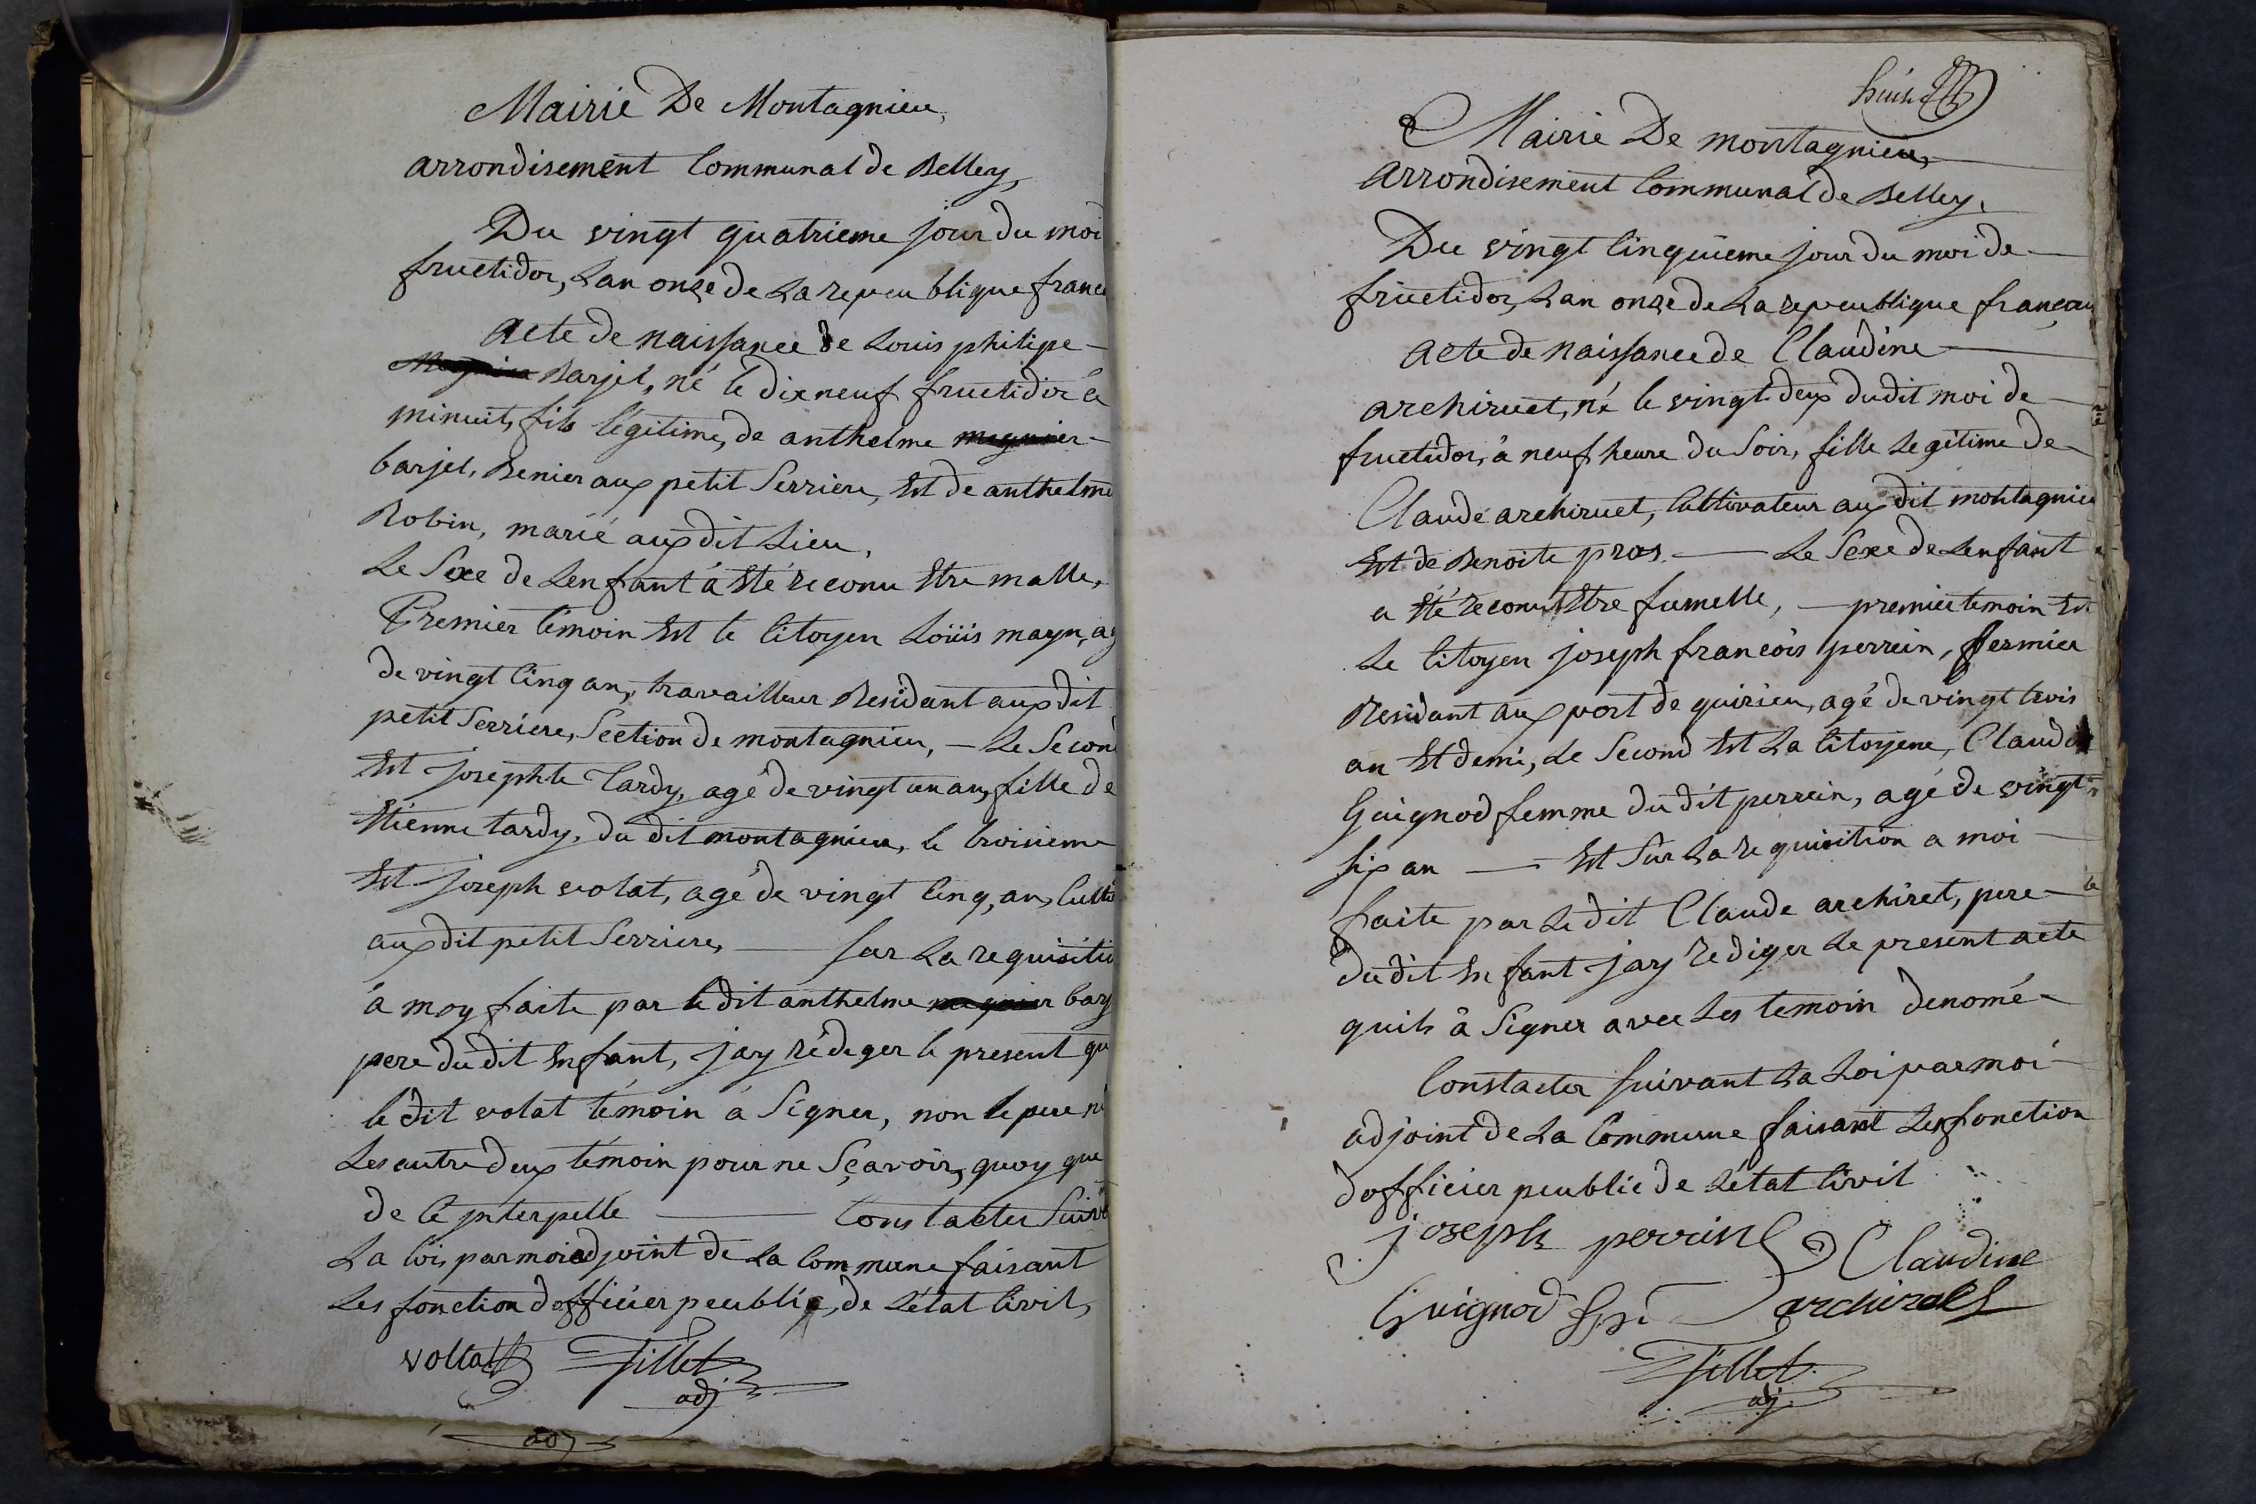 Mairie De Montagnieu,
arrondisement Communal de Belley,
Du vingt quatrieme jour du moi
fructidor, Lan onze de La repeublique france
acte de naissance de Louis philipe -
Barjet, né le dixneuf fructidor a
minuit, fils légitime, de anthelme meynier -
barjet, Benier aux petit Serriere, Et de anthelme
Robin, marié aux dit Lieu,
Le Sexe de Lenfant á Eté reconu Etre malle,
Premier témoin Est le Citoyen Loüis mayn, ag
de vingt Cinq an, travailleur Residant aux dit
petit Serriere, Section de montagnieu, - Le Secon
Est josephte Tardy, agé de vingt un an, fille de
Etienne tardy, du dit montagnieu, le troisieme
Est joseph volat, agé de vingt Cinq, an, Culti
aux dit petit Serriere, — sur La requisitio
á moy faite par le dit anthelme meynier barj
pere du dit Enfant, jay rédeger le present qu
le dit volat témoin á Signer, non le pere ni
Les autre deux témoin pour ne Sçavoir, quoy que
de Ce jnterpellé — Constatter Suiv
La loi, par moi adjoint de La Commune faisant
Les fonction dofficier peublic, de Létat Civil,
voltat Tillet
adj
adj
huit
Mairie De montagnieu,
arrondisement Communal de Belley,
Du vingt Cinquieme jour du moi de -
fructidor, Lan onze de La repeublique françai
acte de naissance de Claudine —
archiruet, né le vingt deux dudit moi de -
fructidor, à neuf heure du Soir, fille Legitime de -
Claude archiruet, Cultivateur aux dit montagnieu
Est de Benoite pras. — Le Sexe de Lenfant
a Eté reconu Etre fumelle, - premier temoin Est
Le Citoyen joseph francois perrein, fermier
Residant aux port de quirieu, agé de vingt trois
an Et demi, Le Second Est La Citoyene, Claudi
Guignod femme du dit perrein, agé de vingt
six an — Est Sur La requisition a moi -
faite par Le dit Claude archiret, pere -
du dit Enfant jay rediger Le present acte
quils à Signer avec Les temoin denomé -
Constater suivant La Loi par moi -
adjoint de La Commune faisant Les fonction
dofficier peublic de Létat Civil
joseph perrin Claudine
Guignod archirel
Tillet
adj